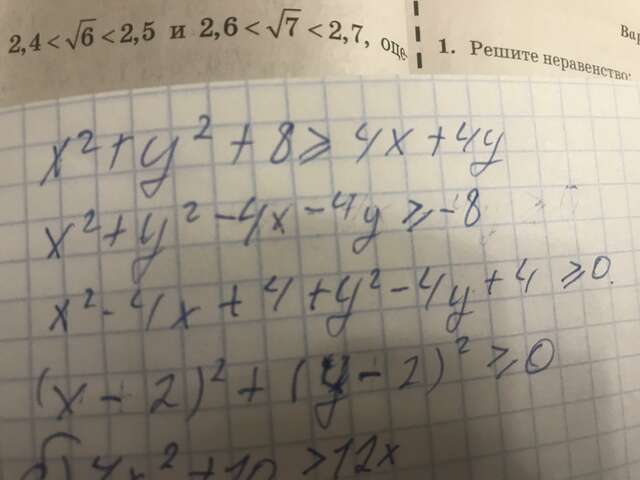 2,4 < √6 < 2,5 и 2,6 < √7 < 2,7, оце-
Вар
1. Решите неравенство:
x² + y² + 8 ⩾ 4x + 4y
x² + y² - 4x - 4y ⩾ -8
x² - 4x + 4 + y² - 4y + 4 ⩾ 0.
(x - 2)² + (y - 2)² ⩾ 0
б) 4x² + 10 > 12x